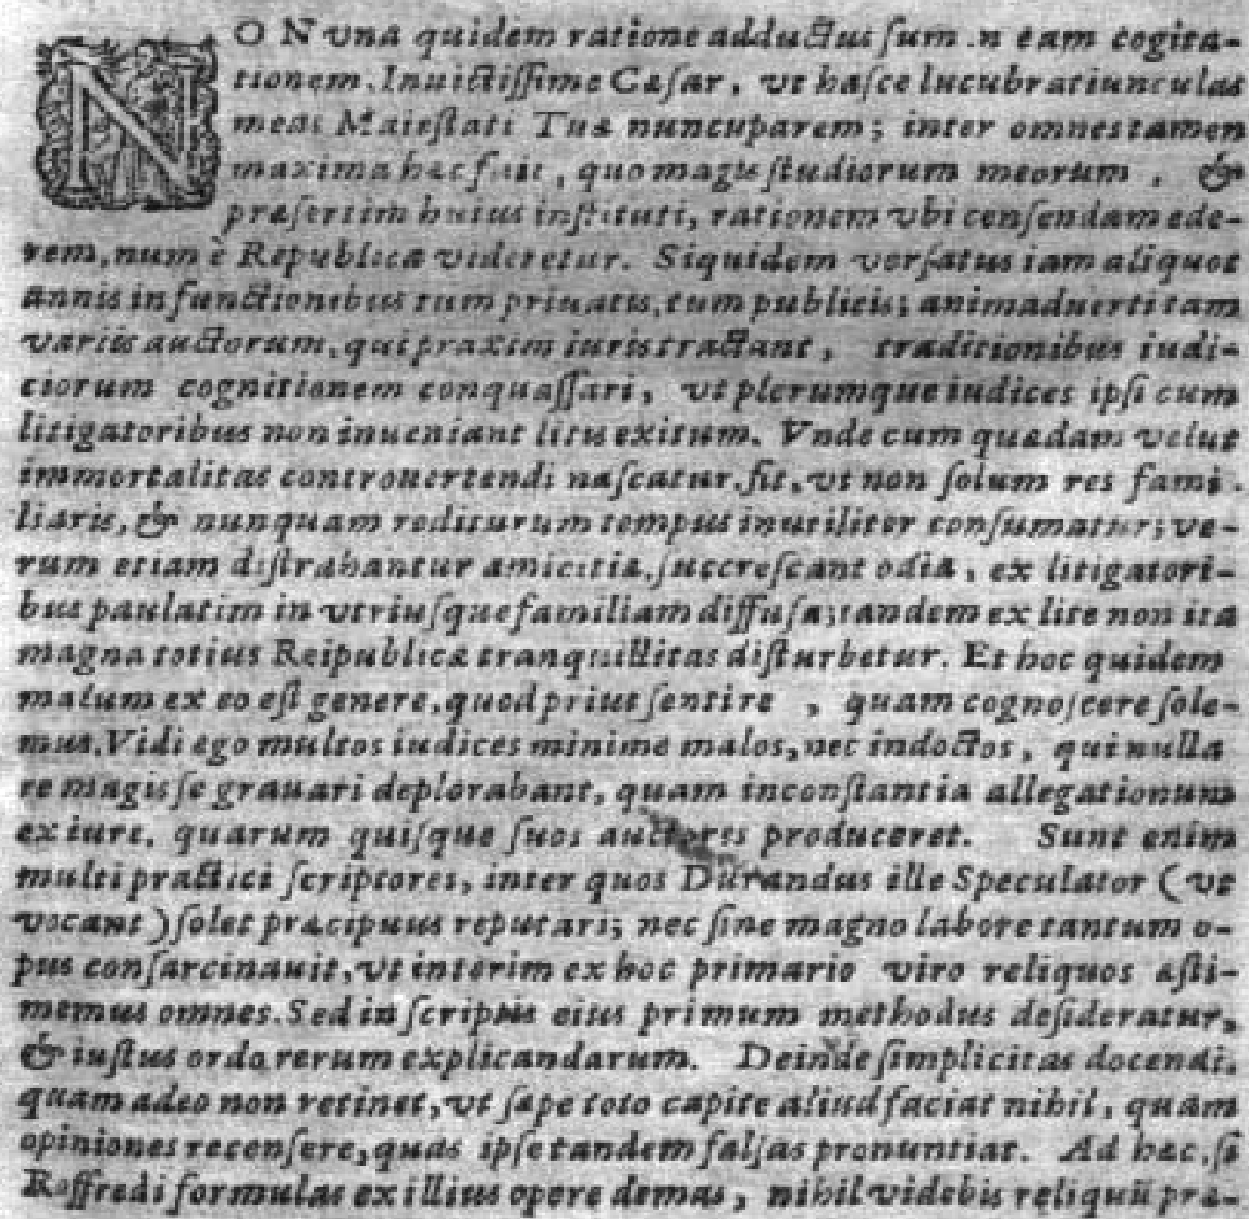 NON vna quidem ratione adductus sum in eam cogita-
tionem, Inuictissime Cæsar, vt hasce lucubratiunculas
meas Maiestati Tuæ nuncuparem; inter omnes tamen
maxima hæc fuit, quo magis studiorum meorum, &
præsertim huius instituti, rationem vbi censendam ede-
rem, num è Republica videretur. Siquidem versatus iam aliquot
annis in functionibus tum priuatis, tum publicis; animaduerti tam
variis auctorum, qui praxim iuris tractant, traditionibus iudi-
ciorum cognitionem conquassari, vt plerumque iudices ipsi cum
litigatoribus non inueniant litis exitum. Vnde cum quædam velut
immortalitas controuertendi nascatur, fit, vt non solum res fami-
liaris, & nunquam rediturum tempus inutiliter consumatur; ve-
rum etiam distrahantur amicitiæ, succrescant odia, ex litigatori-
bus paulatim in vtriusque familiam diffusa; tandem ex lite non ita
magna totius Reipublicæ tranquillitas disturbetur. Et hoc quidem
malum ex eo est genere, quod prius sentire, quam cognoscere sole-
mus. Vidi ego multos iudices minimè malos, nec indoctos, qui nulla
re magis se grauari deplorabant, quam inconstantia allegationum
ex iure, quarum quisque suos auctores produceret. Sunt enim
multi practici scriptores, inter quos Durandus ille Speculator (vt
vocant) solet præcipuus reputari; nec sine magno labore tantum o-
pus consarcinauit, vt interim ex hoc primario viro reliquos æsti-
memus omnes. Sed in scriptis eius primum methodus desideratur,
& iustus ordo rerum explicandarum. Deinde simplicitas docendi,
quam adeo non retinet, vt sæpe toto capite aliud faciat nihil, quam
opiniones recensere, quas ipse tandem falsas pronuntiat. Ad hæc, si
Roffredi formulas ex illius opere demas, nihil videbis reliquii præ-